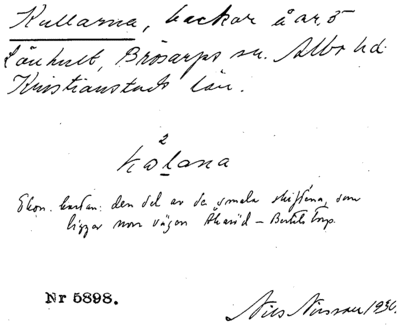 Kullarna, backar å nr 5
Lönhult, Brösarps sn. Albo hd.
Kristianstads län.
2
kalana
Ekon. kartan: den del av de smala skiftena, som
ligger norr vägen – Bertilstorp.
Nr 5898.
Nils Nilsson 1936.